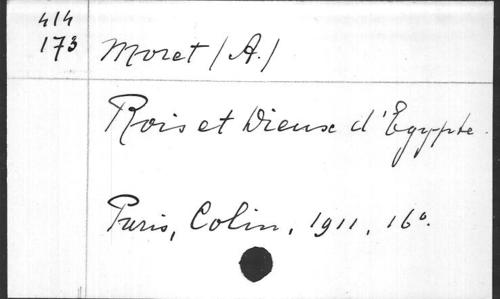 414
173
Moret (A.)
Rois et Dieux d'Egypte.
Paris, Colin, 1911, 16°.